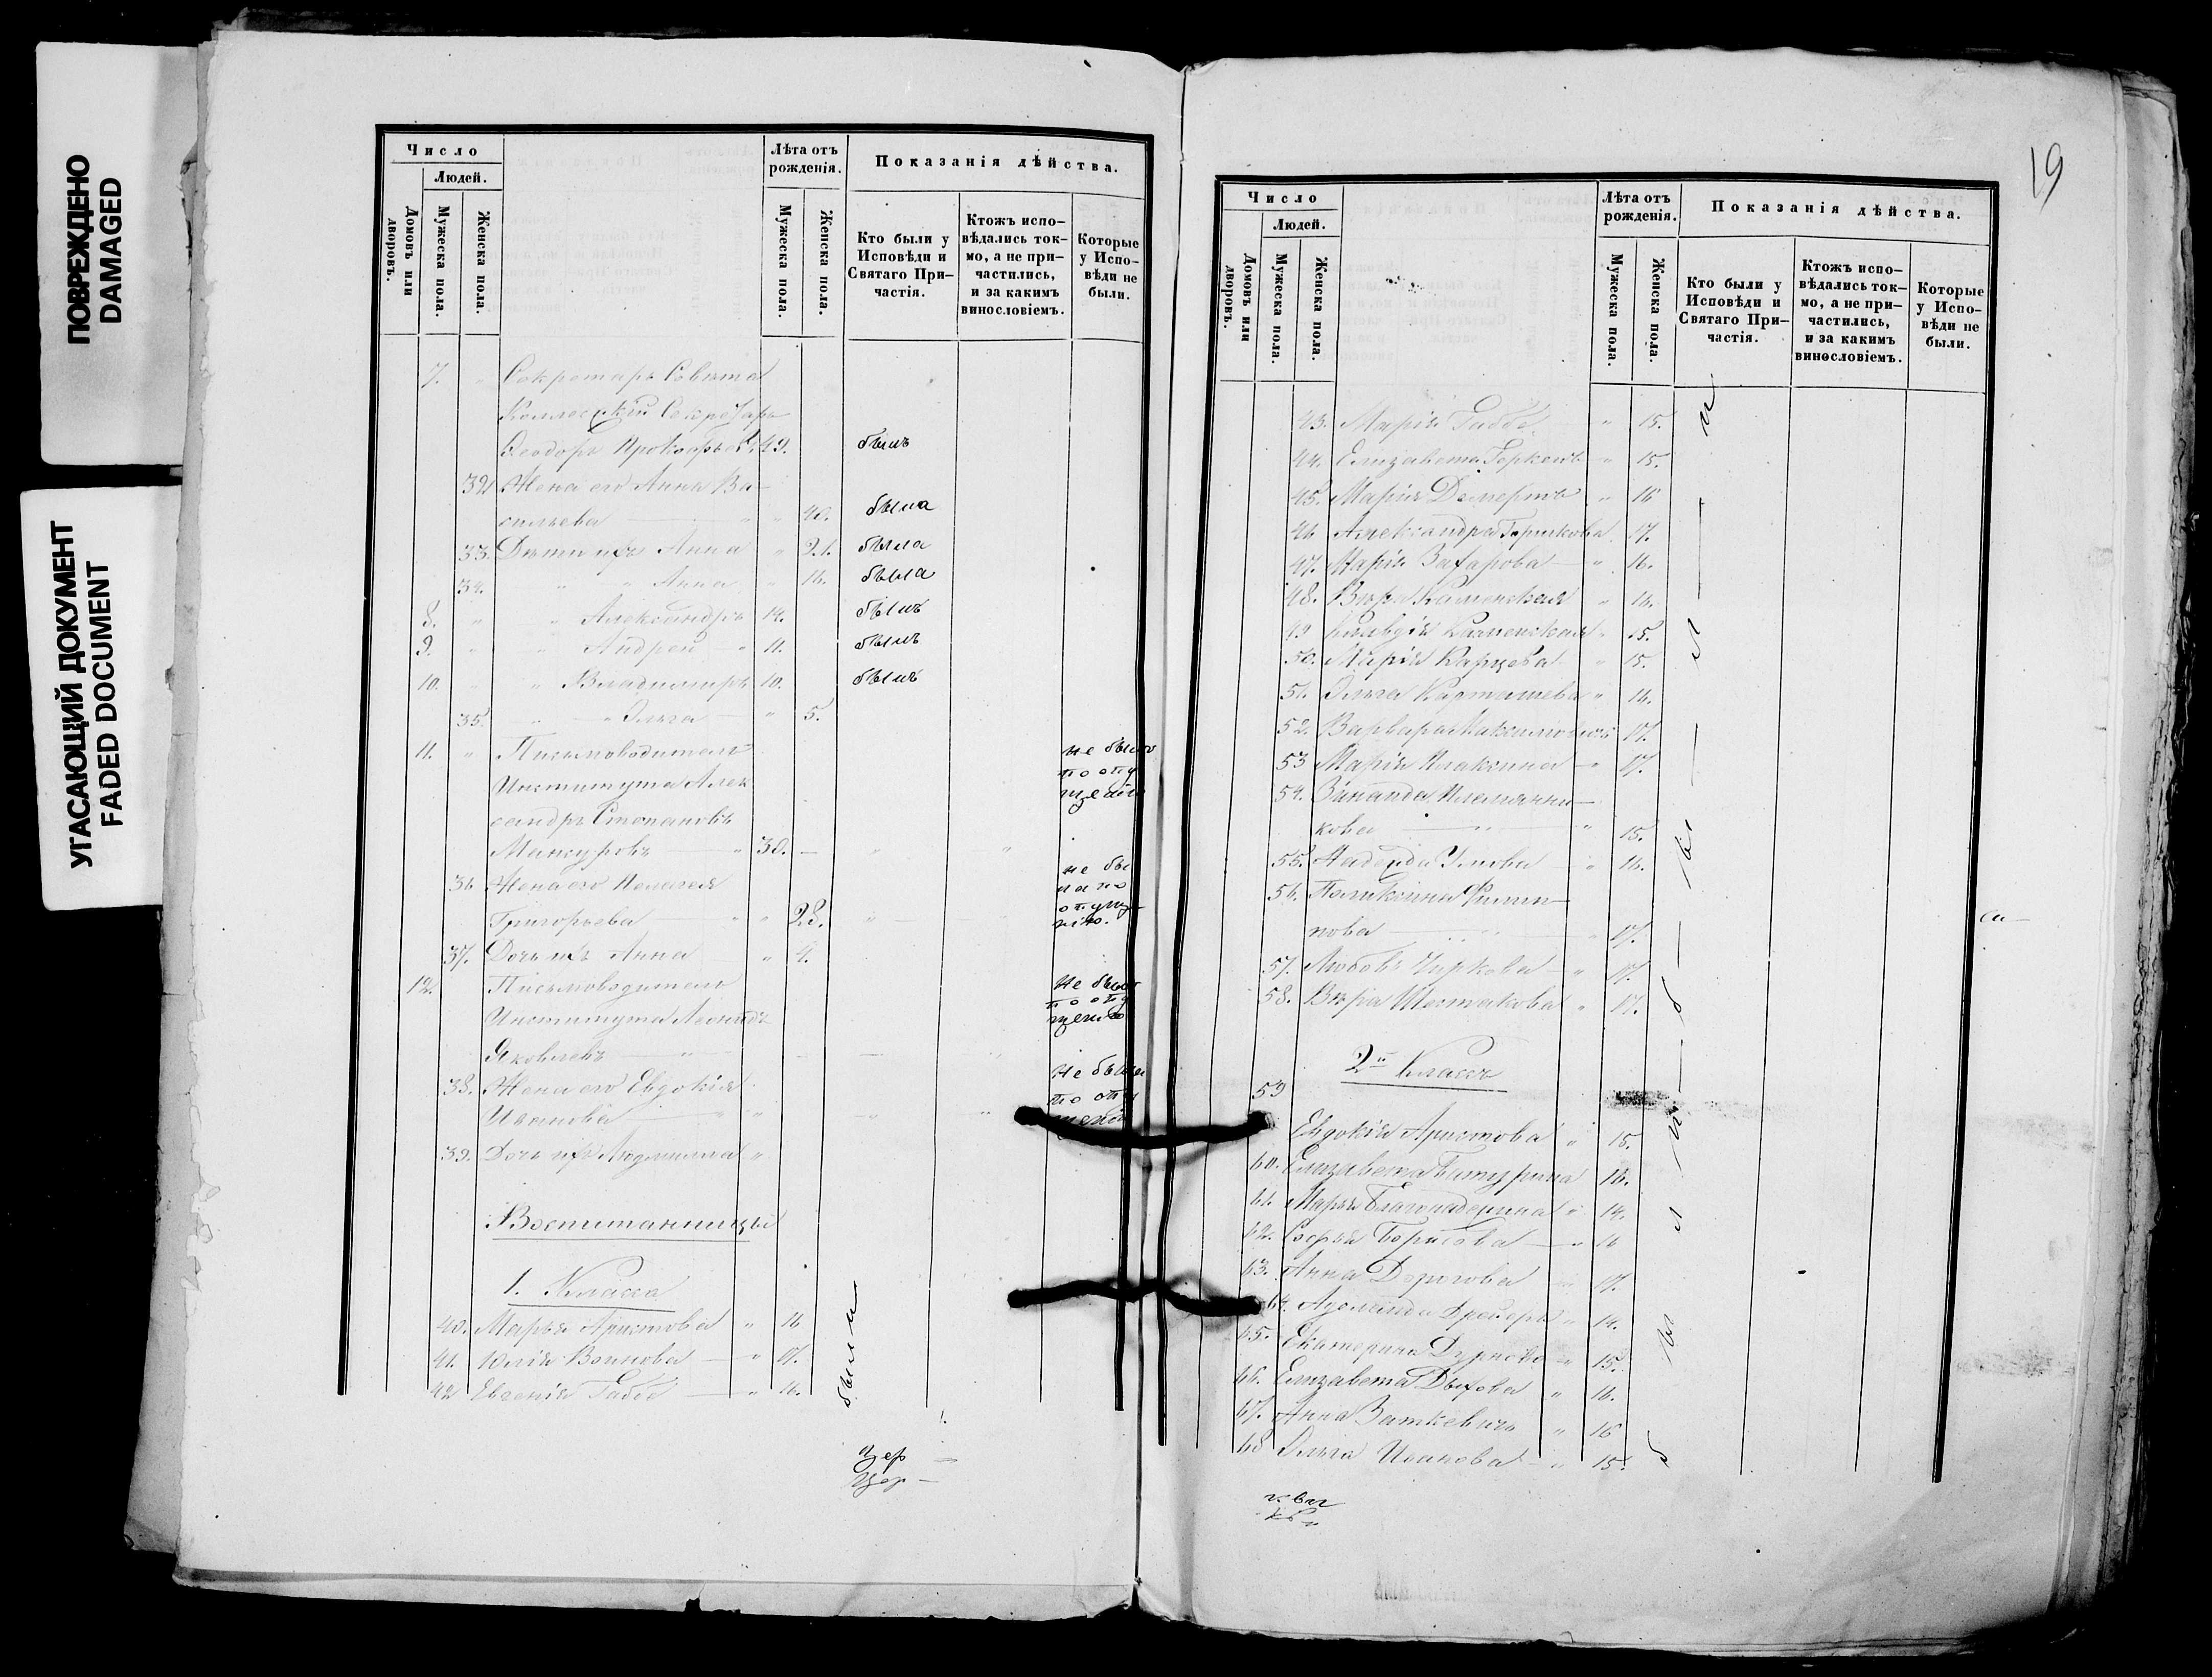 ПОВРЕЖДЕНО
DAMAGED
УГАСАЮЩИЙ ДОКУМЕНТ
FADED DOCUMENT
Число
Людей.
Домовъ или дворовъ.
Мужеска пола.
Женска пола.
Лѣта отъ рожденія.
Мужеска пола.
Женска пола.
Показанія дѣйства.
Кто были у Исповѣди и Святаго Причастія.
Ктожъ исповѣдались токмо, а не причастились, и за какимъ винословіемъ.
Которые у Исповѣди не были.
7. Секретарь Совѣта
Коллежскій Секретарь
Ѳеодоръ 49. былъ
32 Жена его Анна Ва-
сильева 40. была
33. Дѣти ихъ Анна 21. была
34. Анна 16. была
8. Александръ 14. былъ
9. Андрей 11. былъ
10. Владимиръ 10. былъ
35. Ольга 5.
11. Письмоводитель не былъ
Института Алек по опу
сандръ Степановъ щенію
Мансуровъ 30.
36 Жена его Пелагея не бы
Григорьева 28. ла по опущ
37. Дочь ихъ Анна 4.
12. Письмоводитель не былъ
Института Леонидъ по опу
Яковлевъ щенію
38. Жена его Евдокія не была
Иванова по опу
39. Дочь ихъ Людмилла
Воспитанницы
1. Класса
40. Марья Аристова 16
41. Юлія Воинова 17.
42 Евгенія Габбе 16. были
19
Число
Людей.
Домовъ или дворовъ.
Мужеска пола.
Женска пола.
Лѣта отъ рожденія.
Мужеска пола.
Женска пола.
Показанія дѣйства.
Кто были у Исповѣди и Святаго Причастія.
Ктожъ исповѣдались токмо, а не причастились, и за какимъ винословіемъ.
Которые у Исповѣди не были.
43. Марія Габбе 15.
44. Елизавета Геркенъ 15.
45. Марія Демертъ 16
46 Александра Горшкова 17.
47. Марія Захарова 16.
48. Вѣра Каменская 16.
49 Клавдія Каменская 15.
50. Марія Карцева 15.
51. Ольга Карташева 16.
52. Варвара 17.
53 Марія Плаксина 17.
54. Зинаида Племянни-
кова 15.
55. Надежда Умова 16.
56. Поликсина Филип-
пова 17.
57. Любовь Чиркова 17.
58. Вѣра Шестакова 17.
2й Классъ
59
Евдокія Аристова 15.
60. Елизавета Батурина 16.
61. Марья Благонадеждина 14.
62. Софья Борисова 16
63. Анна Дорогова 17.
64. Аделаида Дрейеръ 14.
65. Екатерина Дурново 15.
66. Елизавета Дыхова 16.
67. Анна Заткевичъ 16
68 Ольга Иванова 15.
были